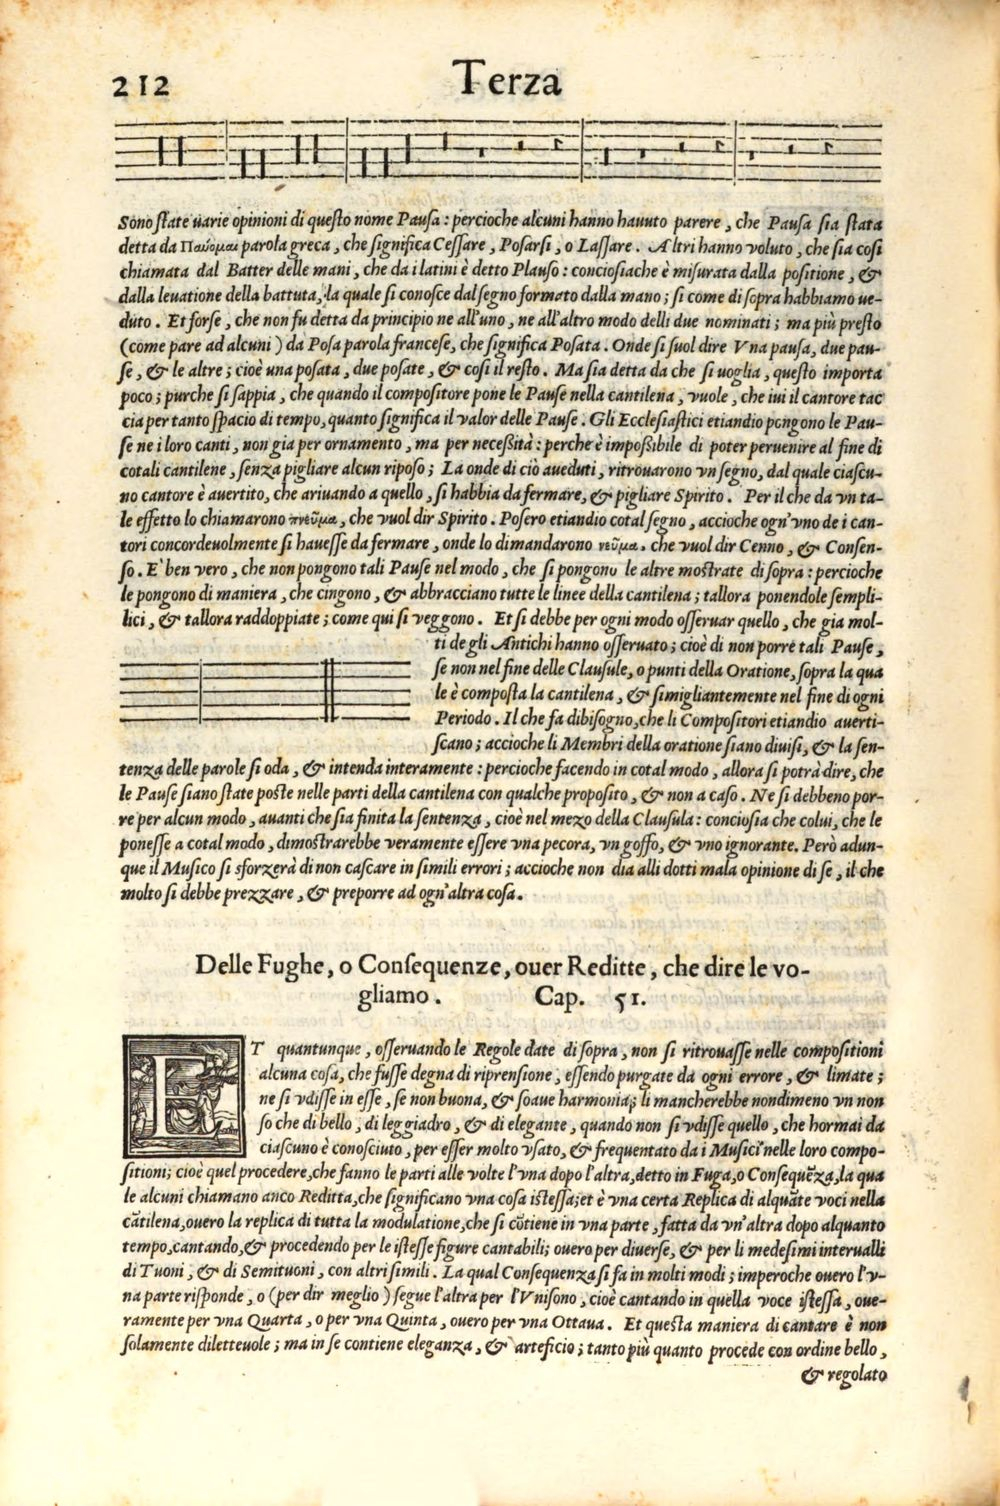 212
Terza
Sono ſtate uarie opinioni di queſto nome Pauſa : percioche alcuni hanno hauuto parere , che Pauſa ſia ſtata
detta da Παύομαι parola greca , che ſignifica Ceſſare , Poſarſi , o Laſſare . Altri hanno voluto , che ſia coſi
chiamata dal Batter delle mani , che da i latini è detto Plauſo : concioſiache è miſurata dalla poſitione , &
dalla leuatione della battuta, la quale ſi conoſce dal ſegno formato dalla mano ; ſi come di ſopra habbiamo ue-
duto . Et forſe , che non fu detta da principio ne all'uno , ne all'altro modo delli due nominati ; ma più preſto
(come pare ad alcuni ) da Poſa parola franceſe, che ſignifica Poſata . Onde ſi ſuol dire Vna pauſa, due pau-
ſe , & le altre ; cioè una poſata , due poſate , & coſi il reſto . Ma ſia detta da che ſi uoglia , queſto importa
poco ; purche ſi ſappia , che quando il compoſitore pone le Pauſe nella cantilena , vuole , che iui il cantore tac
cia per tanto ſpacio di tempo, quanto ſignifica il valor delle Pauſe . Gli Eccleſiaſtici etiandio pongono le Pau-
ſe ne i loro canti , non gia per ornamento , ma per neceßità : perche è impoßibile di poter peruenire al fine di
cotali cantilene , ſenza pigliare alcun ripoſo ; La onde di ciò aueduti , ritrouarono vn ſegno, dal quale ciaſcu-
no cantore è auertito, che ariuando a quello , ſi habbia da fermare, & pigliare Spirito . Per il che da vn ta-
le effetto lo chiamarono πνεῦμα , che vuol dir Spirito . Poſero etiandio cotal ſegno , accioche ogn'vno de i can-
tori concordeuolmente ſi haueſſe da fermare , onde lo dimandarono νεῦμα , che vuol dir Cenno , & Conſen-
ſo . E' ben vero , che non pongono tali Pauſe nel modo , che ſi pongono le altre moſtrate di ſopra : percioche
le pongono di maniera , che cingono , & abbracciano tutte le linee della cantilena ; tallora ponendole ſempli-
lici , & tallora raddoppiate ; come qui ſi veggono . Et ſi debbe per ogni modo oſſeruar quello , che gia mol-
ti de gli Antichi hanno oſſeruato ; cioè di non porre tali Pauſe ,
ſe non nel fine delle Clauſule, o punti della Oratione, ſopra la qua
le è compoſta la cantilena , & ſimigliantemente nel fine di ogni
Periodo . Il che fa dibiſogno, che li Compoſitori etiandio auerti-
ſcano ; accioche li Membri della oratione ſiano diuiſi, & la ſen-
tenza delle parole ſi oda , & intenda interamente : percioche facendo in cotal modo , allora ſi potrà dire, che
le Pauſe ſiano ſtate poſte nelle parti della cantilena con qualche propoſito , & non a caſo . Ne ſi debbeno por-
re per alcun modo , auanti che ſia finita la ſentenza , cioè nel mezo della Clauſula : concioſia che colui, che le
poneſſe a cotal modo , dimoſtrarebbe veramente eſſere vna pecora, vn goffo, & vno ignorante. Però adun-
que il Muſico ſi sforzerà di non caſcare in ſimili errori ; accioche non dia alli dotti mala opinione di ſe , il che
molto ſi debbe prezzare , & preporre ad ogn'altra coſa .
Delle Fughe, o Conſequenze, ouer Reditte, che dire le vo-
gliamo . Cap. 51.
ET quantunque , oſſeruando le Regole date di ſopra , non ſi ritrouaſſe nelle compoſitioni
alcuna coſa, che fuſſe degna di riprenſione , eſſendo purgate da ogni errore , & limate ;
ne ſi vdiſſe in eſſe , ſe non buona, & ſoaue harmonia; li mancherebbe nondimeno vn non
ſo che di bello , di leggiadro , & di elegante , quando non ſi vdiſſe quello , che hormai da
ciaſcuno è conoſciuto , per eſſer molto vſato, & frequentato da i Muſici nelle loro compo-
ſitioni; cioè quel procedere, che fanno le parti alle volte l'vna dopo l'altra, detto in Fuga, o Conſequēza, la qua
le alcuni chiamano anco Reditta, che ſignificano vna coſa iſteſſa; et è vna certa Replica di alquāte voci nella
cātilena, ouero la replica di tutta la modulatione, che ſi cōtiene in vna parte , fatta da vn'altra dopo alquanto
tempo, cantando, & procedendo per le iſteſſe figure cantabili; ouero per diuerſe, & per li medeſimi interualli
di Tuoni , & di Semituoni , con altri ſimili . La qual Conſequenza ſi fa in molti modi ; imperoche ouero l'v-
na parte riſponde , o ( per dir meglio ) ſegue l'altra per l'Vniſono , cioè cantando in quella voce iſteſſa , oue-
ramente per vna Quarta , o per vna Quinta , ouero per vna Ottaua . Et queſta maniera di cantare è non
ſolamente diletteuole ; ma in ſe contiene eleganza , & arteficio ; tanto più quanto procede con ordine bello ,
& regolato